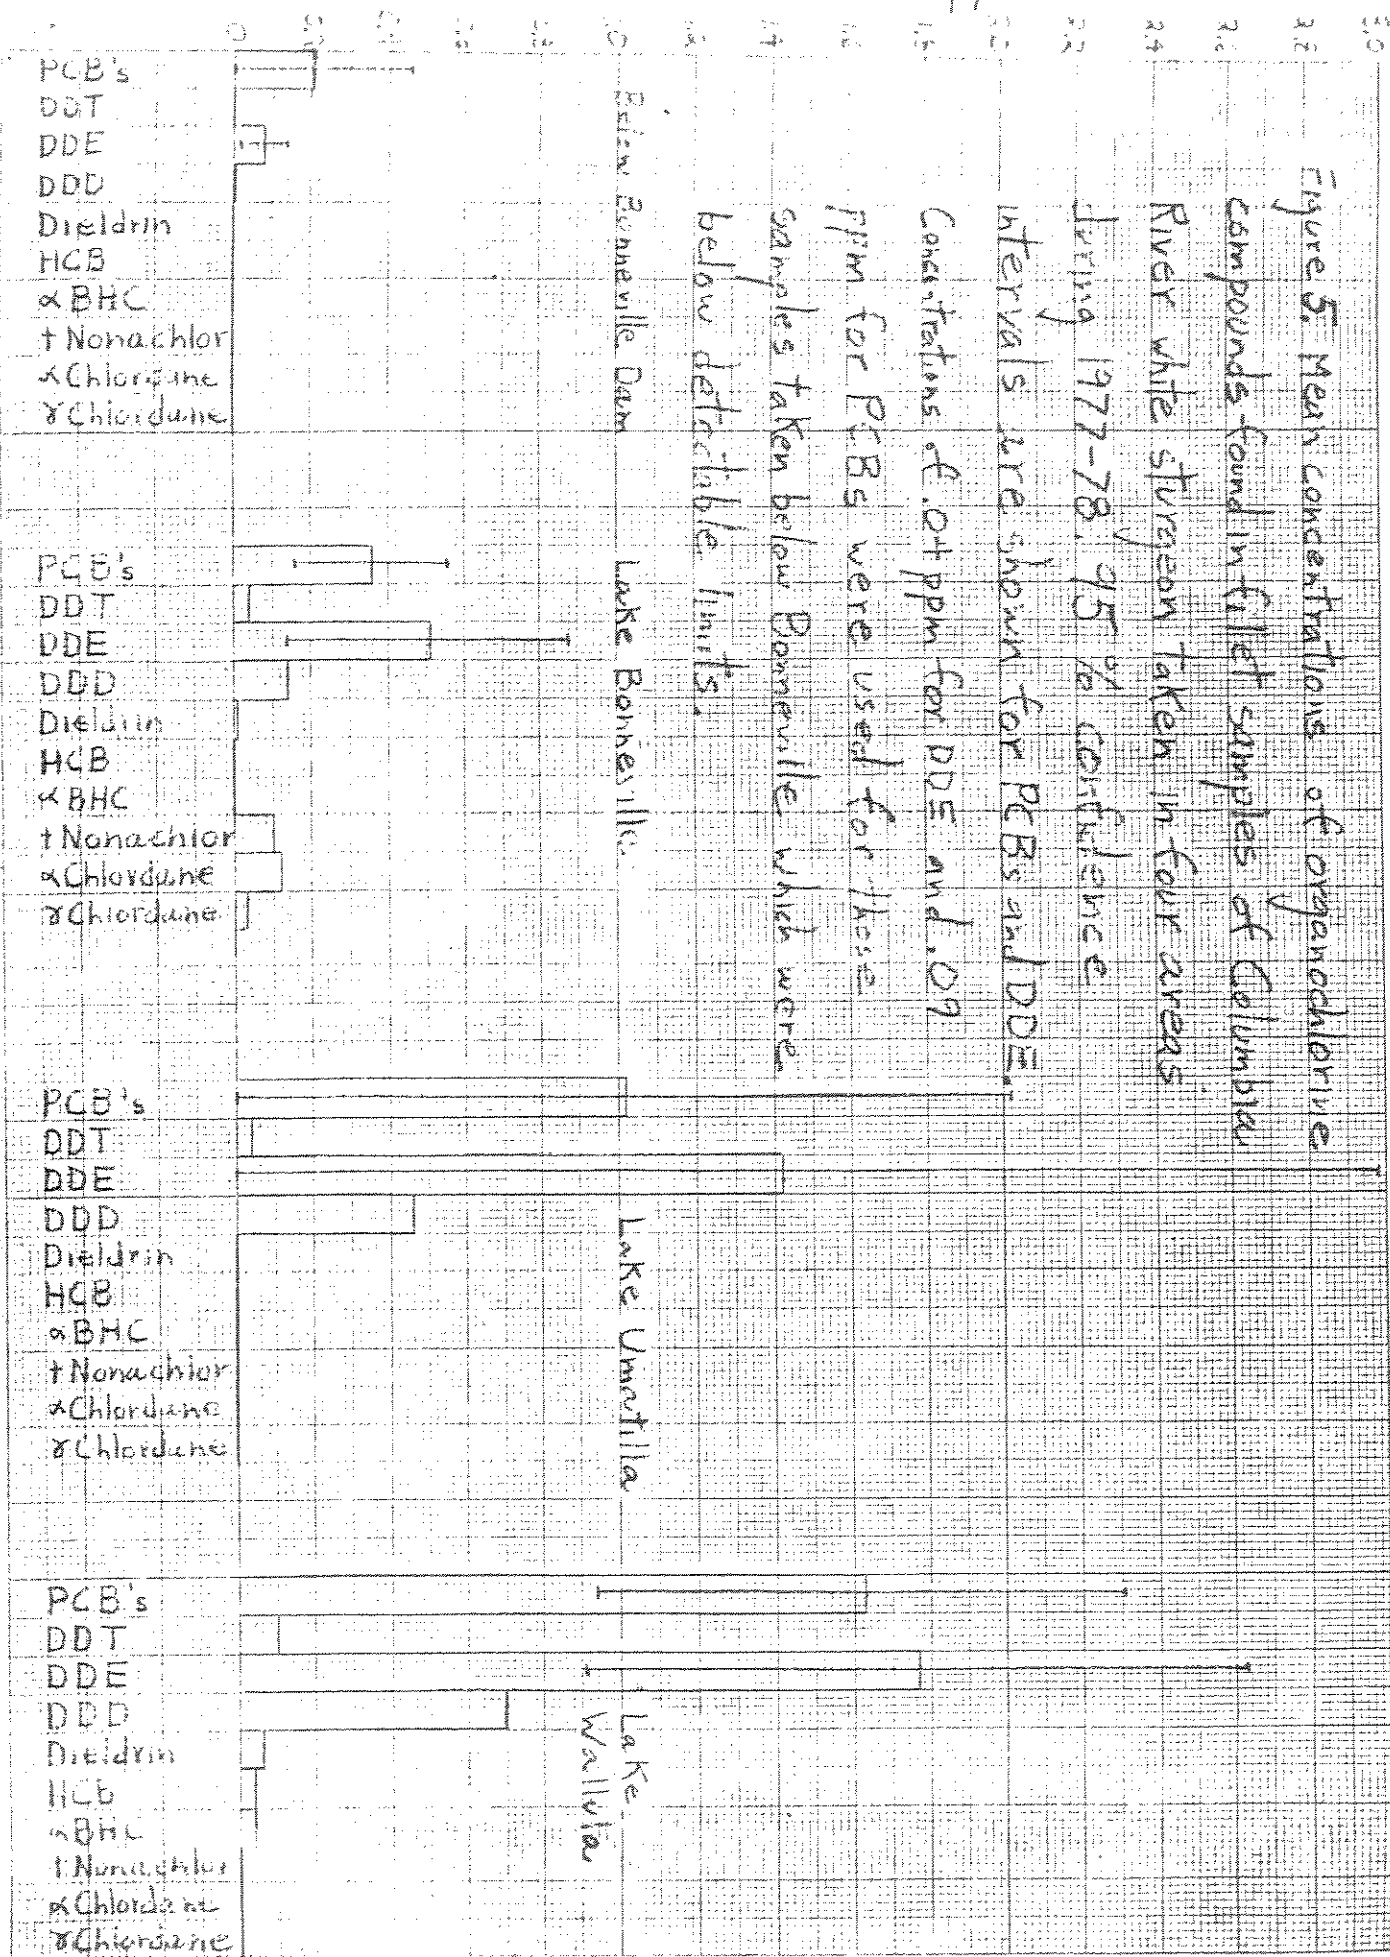 0 .2 .4 .6 .8 1.0 1.2 1.4 1.6 1.8 2.0 2.2 2.4 2.6 2.8 3.0
Figure 5. Mean concentrations of organochlorine
compounds found in fillet samples of Columbia
River white sturgeon taken in four areas
during 1977-78. 95% confidence
intervals are shown for PCBs and DDE.
Concentrations of .04 ppm for DDE and .09
ppm for PCBs were used for those
samples taken below Bonneville which were
below detectible limits.
Below Bonneville Dam
PCB's
DDT
DDE
DDD
Dieldrin
HCB
αBHC
†Nonachlor
αChlordane
γChlordane
Lake Bonneville
PCB's
DDT
DDE
DDD
Dieldrin
HCB
αBHC
†Nonachlor
αChlordane
γChlordane
Lake Umatilla
PCB's
DDT
DDE
DDD
Dieldrin
HCB
αBHC
†Nonachlor
αChlordane
γChlordane
Lake
Wallula
PCB's
DDT
DDE
DDD
Dieldrin
HCB
αBHC
†Nonachlor
αChlordane
γChlordane